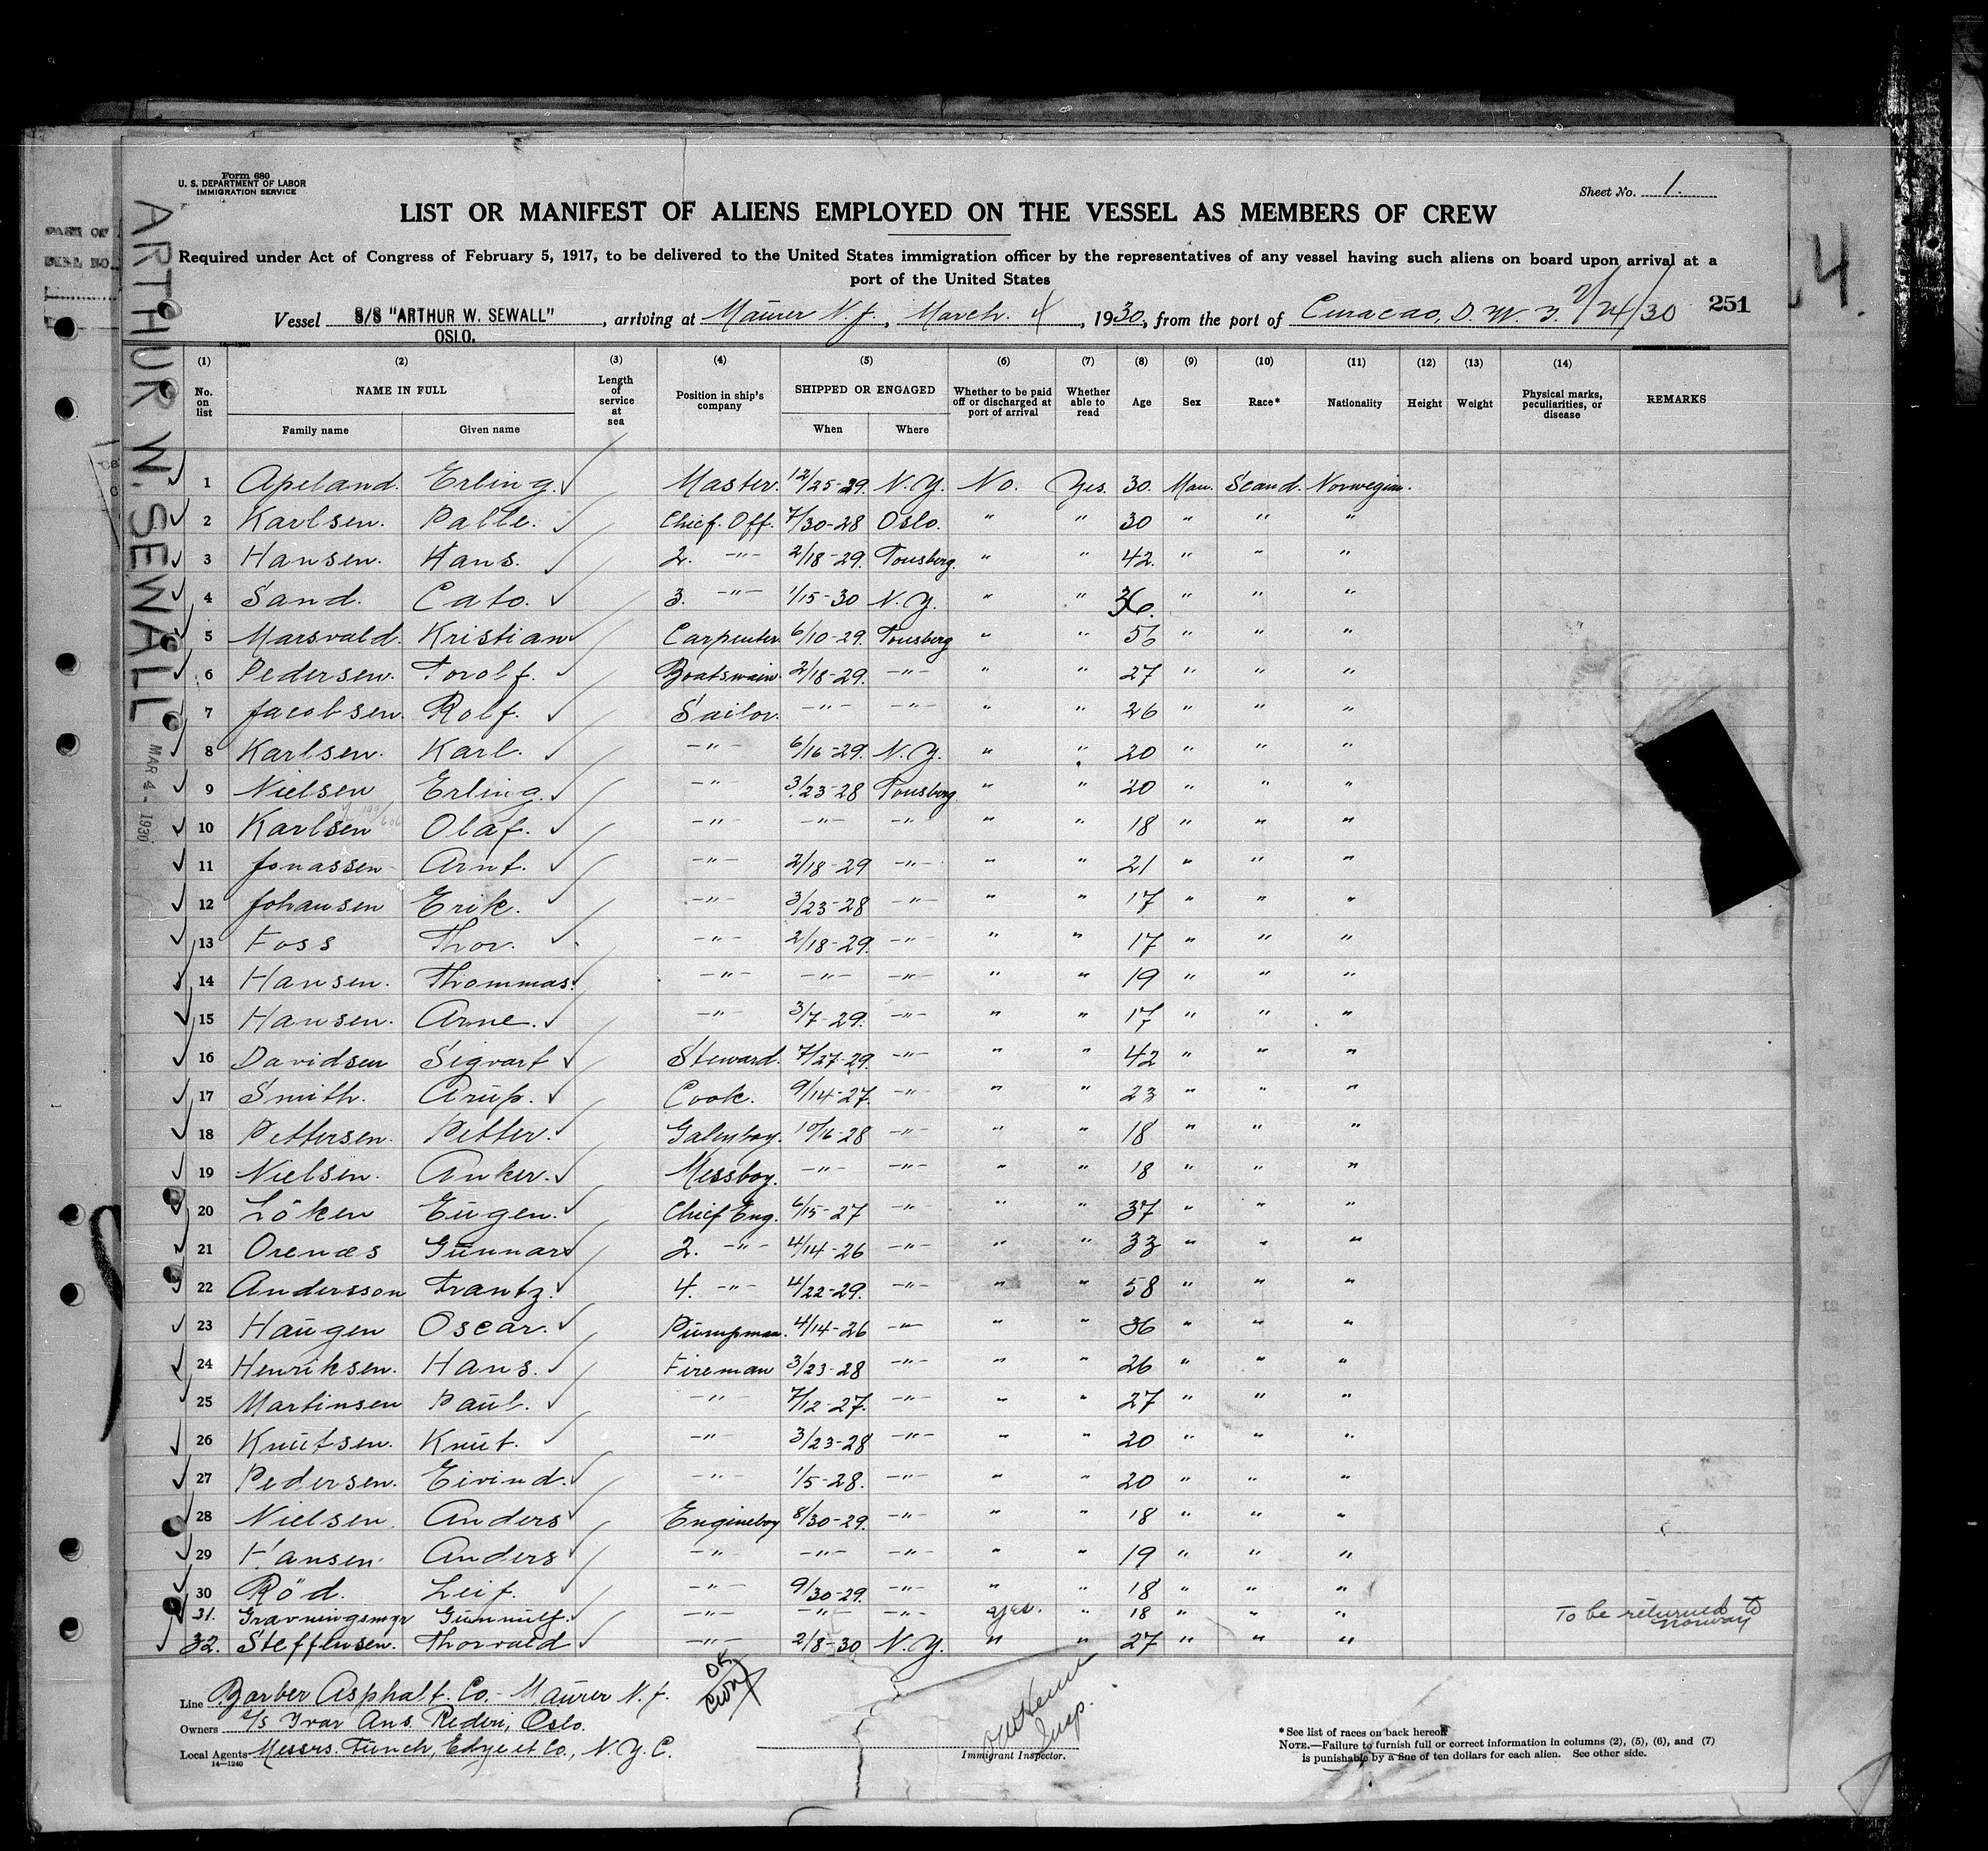 Form 680
U. S. DEPARTMENT OF LABOR
IMMIGRATION SERVICE
Sheet No. 1.
LIST OR MANIFEST OF ALIENS EMPLOYED ON THE VESSEL AS MEMBERS OF CREW
Required under Act of Congress of February 5, 1917, to be delivered to the United States immigration officer by the representatives of any vessel having such aliens on board upon arrival at a
port of the United States
Vessel S/S "ARTHUR W. SEWALL" , arriving at Maurer N.J. , March. 4 , 1930, from the port of Curacao, D. W. I. 2/24/30 251
OSLO.
4.
ARTHUR W. SEWALL
MAR 4 - 1930
14-1240
(1) (2) (3) (4) (5) (6) (7) (8) (9) (10) (11) (12) (13) (14)
No. on list NAME IN FULL Length of service at sea Position in ship's company SHIPPED OR ENGAGED Whether to be paid off or discharged at port of arrival Whether able to read Age Sex Race* Nationality Height Weight Physical marks, peculiarities, or disease REMARKS
Family name Given name When Where
1 Apeland. Erling. Master. 12/25-29. N.Y. No. Yes. 30. Man. Scand. Norwegian.
2 Karlsen. Palle. Chief. Off. 7/30-28 Oslo. " " 30 " " "
3 Hansen. Hans. 2. -"- 2/18-29. Tonsberg. " " 42. " " "
4 Sand. Cato. 3. -"- 1/15-30 N.Y. " " 36. " " "
5 Marsvald. Kristian Carpenter. 6/10-29. Tonsberg " " 56 " " "
6 Pedersen. Torolf. Boatswain. 2/18-29. -"- " " 27 " " "
7 Jacobsen. Rolf. Sailor. -"- -"- " " 26 " " "
8 Karlsen. Karl. -"- 6/16-29. N.Y. " " 20 " " "
9 Nielsen Erling. -"- 3/23-28 Tonsberg. " " 20 " " "
10 Karlsen Olaf. -"- -"- -"- " " 18 " " "
11 Jonassen Arnt. -"- 2/18-29 -"- " " 21 " " "
12 Johansen Erik. -"- 3/23-28 -"- " " 17 " " "
13 Foss Thor. -"- 2/18-29. -"- " " 17 " " "
14 Hansen. Thommas. -"- -"- -"- " " 19 " " "
15 Hansen. Arne. -"- 3/7-29. -"- " " 17 " " "
16 Davidsen Sigvart Steward. 7/27-29. -"- " " 42 " " "
17 Smith. Arup. Cook. 9/14-27. -"- " " 23 " " "
18 Pettersen. Petter. Galeyboy. 10/16-28 -"- " " 18 " " "
19 Nielsen. Anker. Messboy. -"- -"- " " 18 " " "
20 Löken Eugen. Chief Eng. 6/15-27 -"- " " 37 " " "
21 Orenæs Gunnar 2. -"- 4/14-26 -"- " " 33 " " "
22 Andersson Frantz. 4. -"- 4/22-29. -"- " " 58 " " "
23 Haugen Oscar. Pumpman. 4/14-26 -"- " " 36 " " "
24 Henriksen. Hans. Fireman 3/23-28 -"- " " 26 " " "
25 Martinsen Paul. -"- 7/12-27. -"- " " 27 " " "
26 Knutsen. Knut. -"- 3/23-28 -"- " " 20 " " "
27 Pedersen. Eivind. -"- 1/5-28. -"- " " 20 " " "
28 Nielsen. Anders Engineboy 8/30-29. -"- " " 18 " " "
29 Hansen. Anders -"- -"- -"- " " 19 " " "
30 Röd. Leif. -"- 9/30-29. -"- " " 18 " " "
31. Gravningsmyr Gunnulf. -"- -"- -"- Yes. " 18 " " " To be returned to Norway
32. Steffensen. Thorvald -"- 2/8-30 N.Y. " " 27 " " "
OK
Line Barber Asphalt. Co. - Maurer N.J.
Owners A/S Ivar Ans. Rederi, Oslo.
Local Agents Messrs. Funch, Edye et Co., N.Y.C.
14-1240
Insp.
Immigrant Inspector.
*See list of races on back hereof.
NOTE.—Failure to furnish full or correct information in columns (2), (5), (6), and (7)
is punishable by a fine of ten dollars for each alien. See other side.